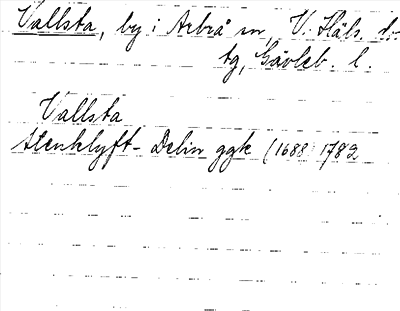 Vallsta, by i Arbrå sn, V. Häls. d:s
tg, Gävleb. l.
Vallsta
Stenklyft - Delin ggk (1688 1782